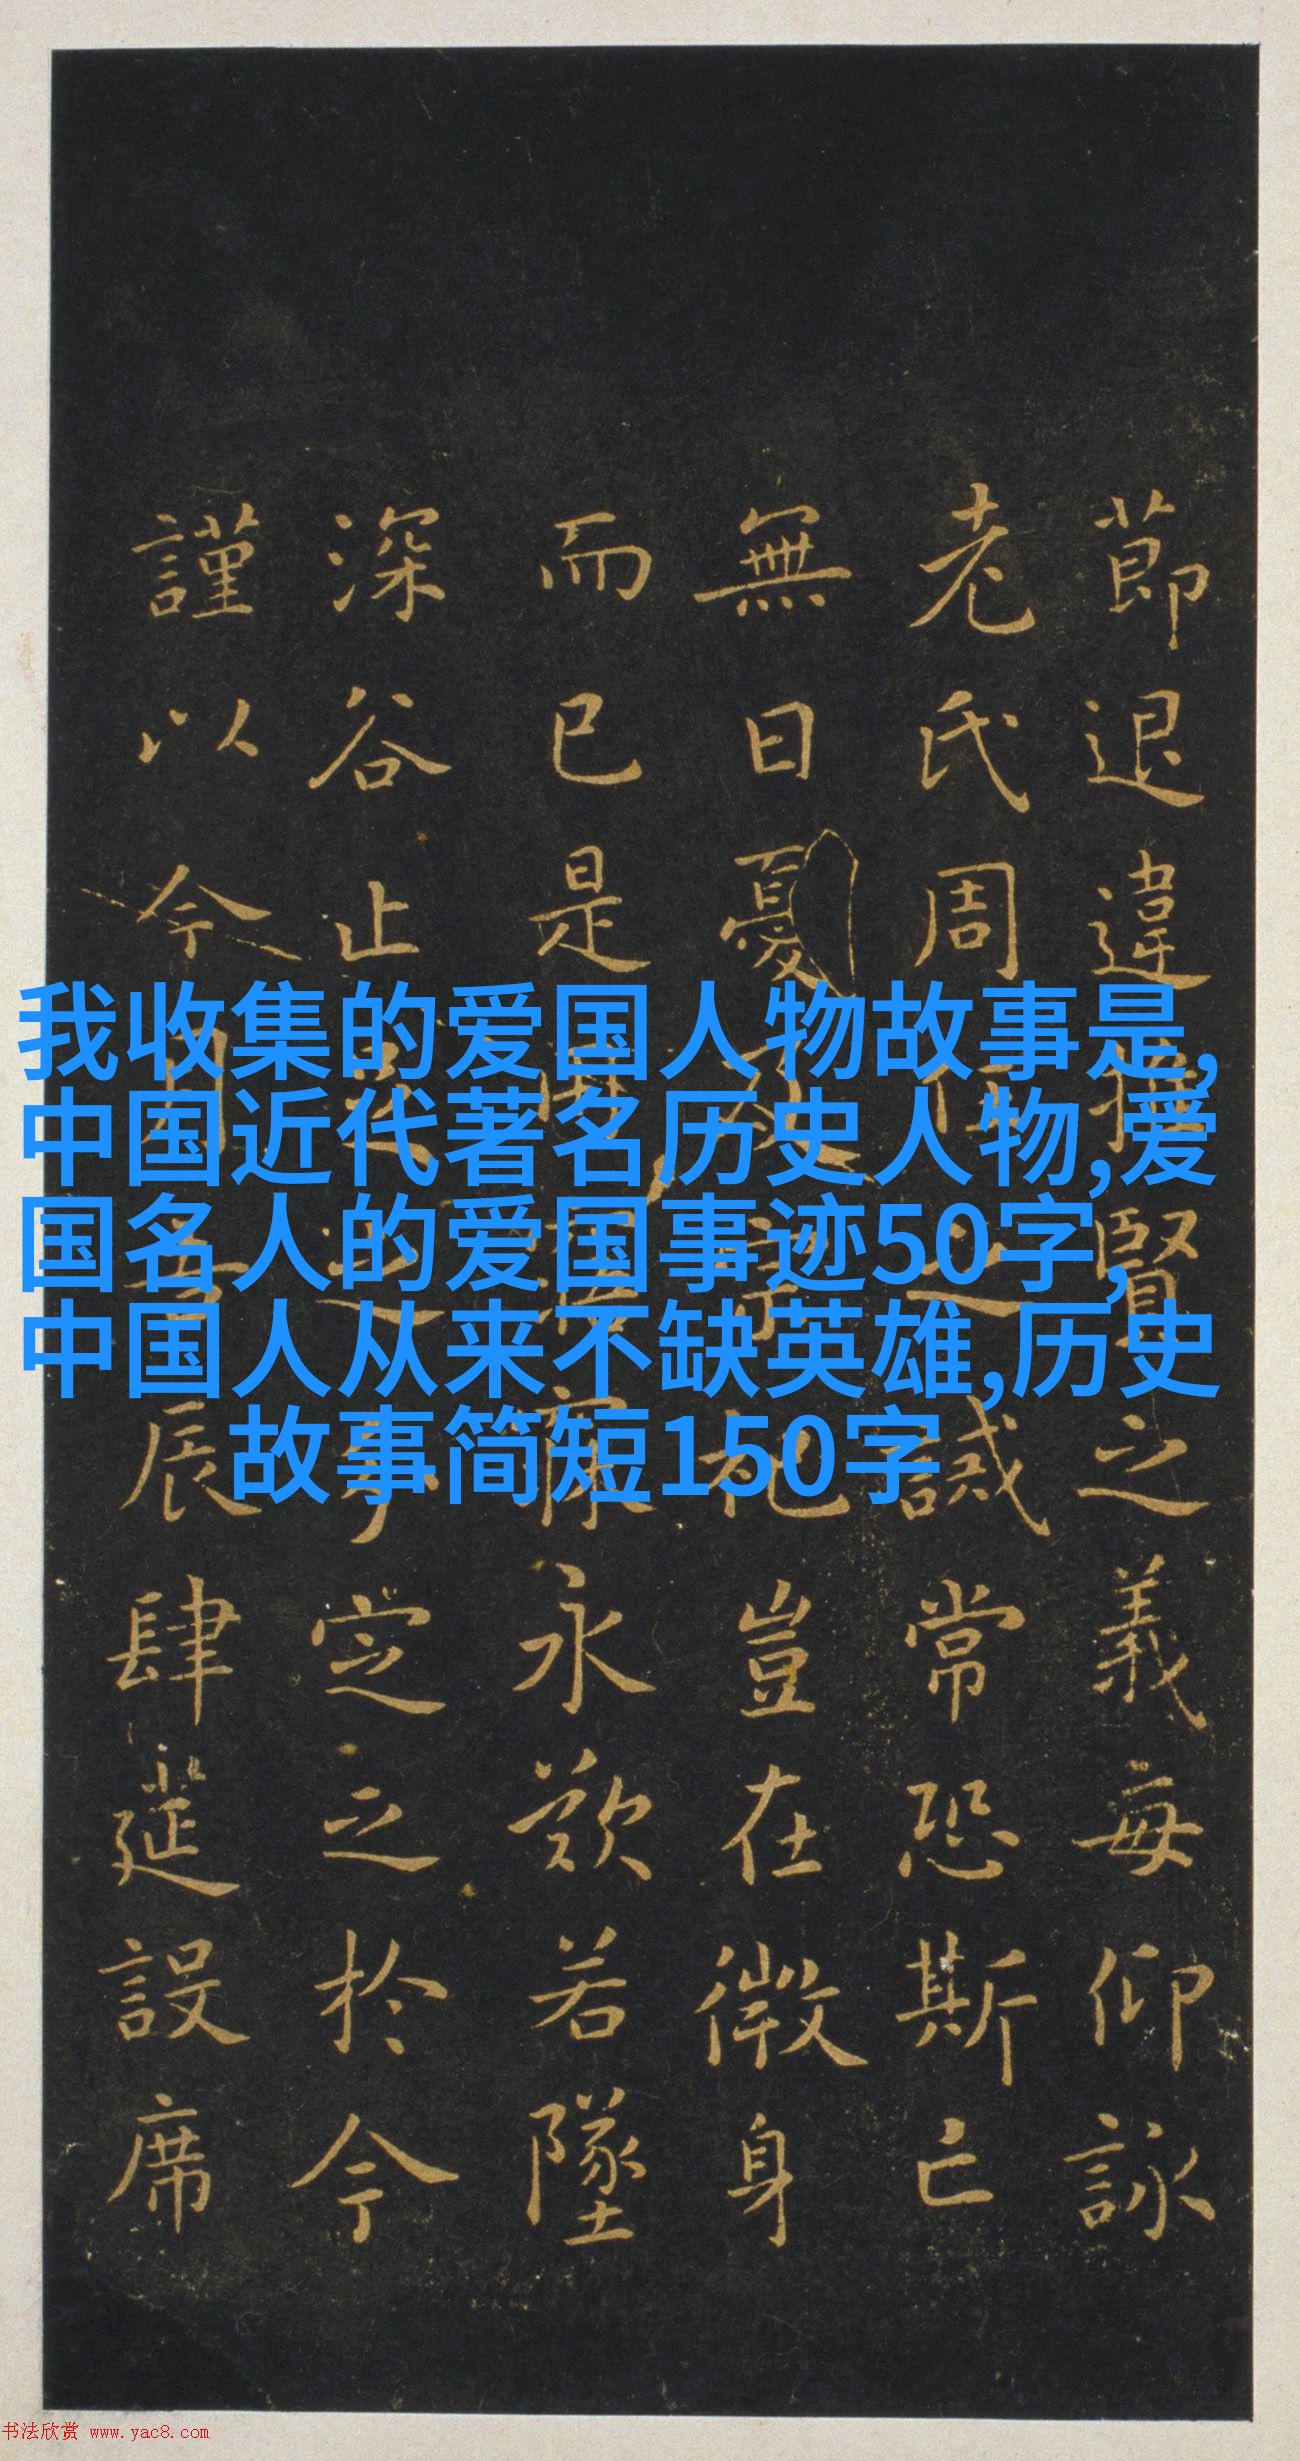 節退違推賢之義每仰詠
老氏周任之誡常恐斯亡
無日憂及宗祀豈在微身
而已是用寤寐永歎若墜
深谷止足之分定之於今
謹以今月吉辰肆筵設席
我收集的爱国人物故事是,
中国近代著名历史人物,爱
国名人的爱国事迹50字,
中国人从来不缺英雄,历史
故事简短150字
书法欣赏 www.yac8.com